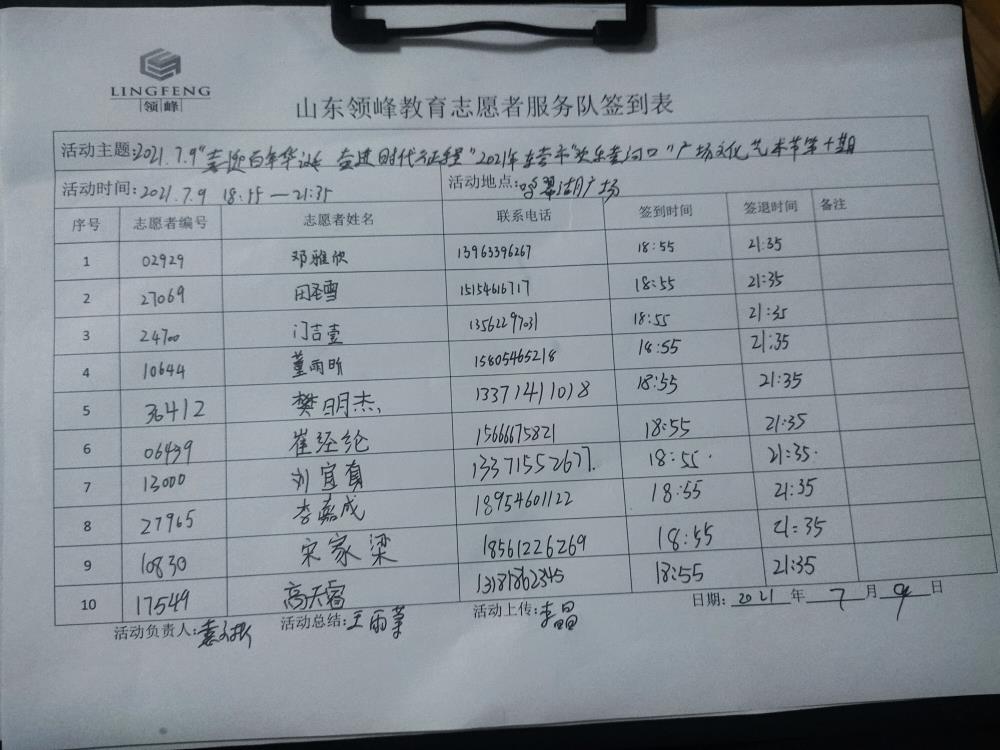 LINGFENG
领峰
山东领峰教育志愿者服务队签到表
活动主题:2021.7.9"喜迎百年华诞 奋进时代征程"2021年东营市"欢乐黄河口"广场文化艺术节第十期
活动时间:2021.7.9 18:55—21:35 活动地点:翠湖广场
序号 志愿者编号 志愿者姓名 联系电话 签到时间 签退时间 备注
1 02929 邓雅欣 13963396267 18:55 21:35
2 27069 田圣雪 15154616717 18:55 21:35
3 24700 门吉壹 13562297031 18:55 21:35
4 10644 董雨昕 15805465218 18:55 21:35
5 36412 樊明杰 13371411018 18:55 21:35
6 06439 崔经纶 15666675821 18:55 21:35
7 13000 刘宜真 13371552677. 18:55. 21:35.
8 27965 李嘉成 18954601122 18:55 21:35
9 10830 宋家梁 18561226269 18:55 21:35
10 17549 高天睿 13181862345 18:55 21:35
活动负责人: 活动总结:王雨 活动上传:李昌 日期:2021年7月9日